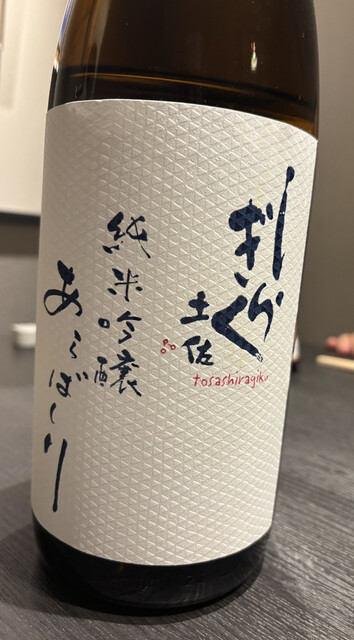 土佐
しらぎく
tosashiragiku
純米吟醸
あらばしり